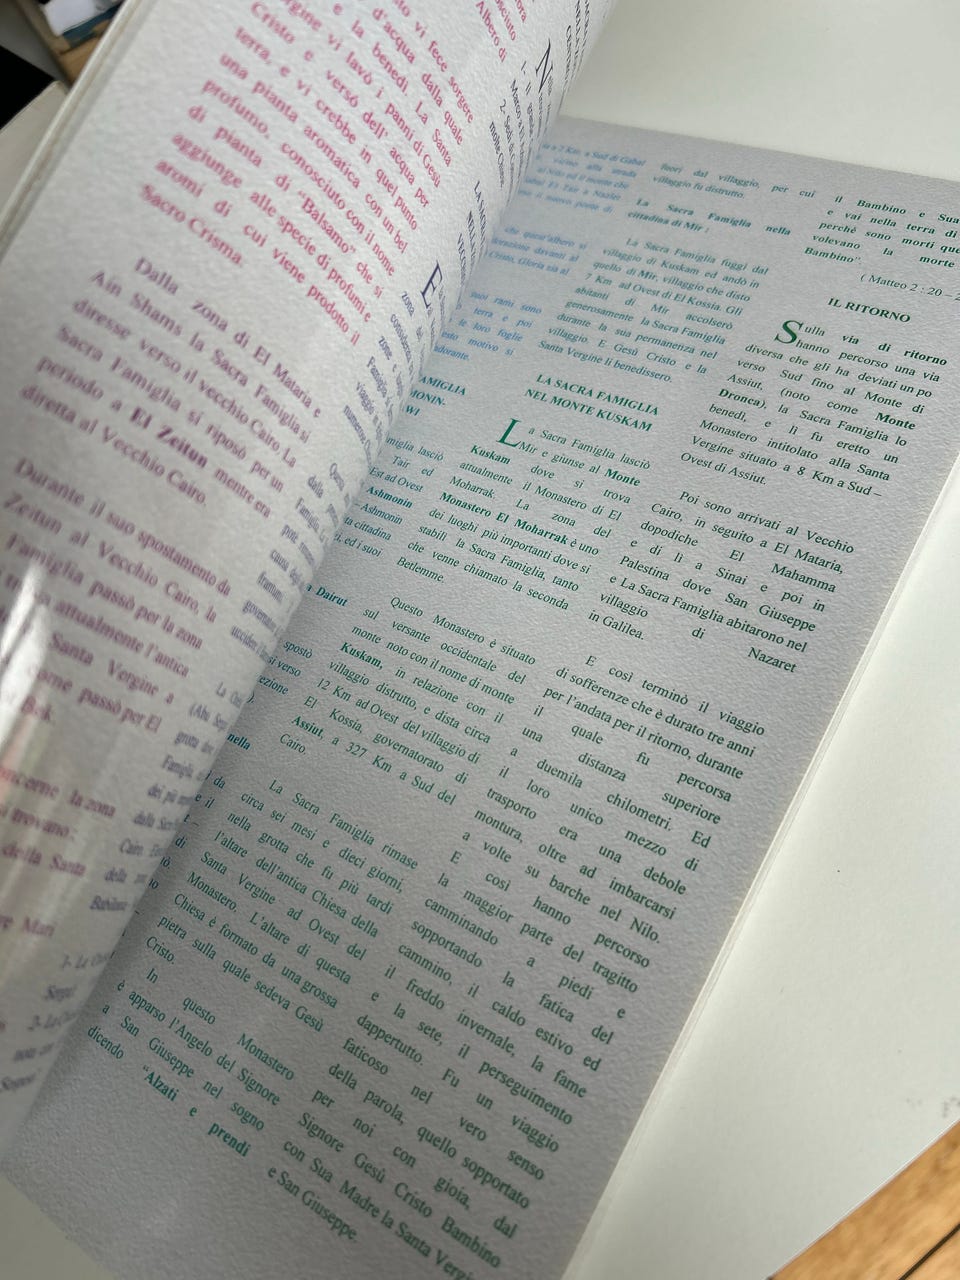 vi fece sorgere
d'acqua dalla quale
e la benedì. La Santa
vi lavò i panni di Gesù
Cristo e versò dell' acqua per
terra, e vi crebbe in quel punto
una pianta aromatica con un bel
profumo, conosciuto con il nome
di pianta di "Balsamo" che si
aggiunge alle specie di profumi e
aromi di cui viene prodotto il
Sacro Crisma.
Dalla zona di El Mataria e
Ain Shams la Sacra Famiglia si
diresse verso il vecchio Cairo. La
Sacra Famiglia si riposò per un
periodo a El Zeitun mentre era
diretta al Vecchio Cairo.
Durante il suo spostamento da
Zeitun al Vecchio Cairo, la
Famiglia passò per la zona
attualmente l'antica
Santa Vergine a
come passò per El
la zona
si trovano:
della Santa
a 2 Km. a Sud di Gabal
vicino alla strada
al Nilo ed il monte che
El Tair a Nazlet
il nuovo ponte di
che quest'albero si
davanti al
Cristo, Gloria sia al
suoi rami sono
terra e poi
le loro foglie
motivo si
lasciò
Tair ed
Est ad Ovest
Ashmonin
Ashmonin
cittadina
ed i suoi
Dairut
spostò
verso
nella
fuori dal villaggio, per cui il
villaggio fu distrutto.
La Sacra Famiglia nella
cittadina di Mir :
La Sacra Famiglia fuggì dal
villaggio di Kuskam ed andò in
quello di Mir, villaggio che disto
7 Km ad Ovest di El Kossia. Gli
abitanti di Mir accolserò
generosamente la Sacra Famiglia
durante la sua permanenza nel
villaggio. E Gesù Cristo e la
Santa Vergine li benedissero.
LA SACRA FAMIGLIA
NEL MONTE KUSKAM
La Sacra Famiglia lasciò
Mir e giunse al Monte
Kuskam dove si trova
attualmente il Monastero di El
Moharrak. La zona del
Monastero El Moharrak è uno
dei luoghi più importanti dove si
stabilì la Sacra Famiglia, tanto
che venne chiamato la seconda
Betlemme.
Questo Monastero è situato
sul versante occidentale del
monte noto con il nome di monte
Kuskam, in relazione con il
villaggio distrutto, e dista circa
12 Km ad Ovest del villaggio di
El Kossia, governatorato di
Assiut, a 327 Km a Sud del
Cairo.
La Sacra Famiglia rimase
circa sei mesi e dieci giorni,
nella grotta che fu più tardi
l'altare dell'antica Chiesa della
Santa Vergine ad Ovest del
Monastero. L'altare di questa
Chiesa è formato da una grossa
pietra sulla quale sedeva Gesù
Cristo.
In questo Monastero
è apparso l'Angelo del Signore
a San Giuseppe nel sogno
dicendo
"Alzati e prendi
il Bambino e Sua
e vai nella terra di
perchè sono morti que
volevano la morte
Bambino".
( Matteo 2 : 20 – 2
IL RITORNO
Sulla via di ritorno
hanno percorso una via
diversa che gli ha deviati un po
verso Sud fino al Monte di
Assiut, (noto come Monte
Dronca), la Sacra Famiglia lo
benedì, e lì fu eretto un
Monastero intitolato alla Santa
Vergine situato a 8 Km a Sud –
Ovest di Assiut.
Poi sono arrivati al Vecchio
Cairo, in seguito a El Mataria,
dopodiche El Mahamma
e di lì a Sinai e poi in
Palestina dove San Giuseppe
e La Sacra Famiglia abitarono nel
villaggio di Nazaret
in Galilea.
E così terminò il viaggio
di sofferenze che è durato tre anni
per l'andata per il ritorno, durante
il quale fu percorsa
una distanza superiore
a duemila chilometri. Ed
il loro unico mezzo di
trasporto era una debole
montura, oltre ad imbarcarsi
a volte su barche nel Nilo.
E così hanno percorso
la maggior parte del tragitto
camminando a piedi e
sopportando la fatica del
cammino, il caldo estivo ed
il freddo invernale, la fame
e la sete, il perseguimento
dappertutto. Fu un viaggio
faticoso nel vero senso
della parola, quello sopportato
per noi con gioia, dal
Signore Gesù Cristo Bambino
con Sua Madre la Santa
e San Giuseppe